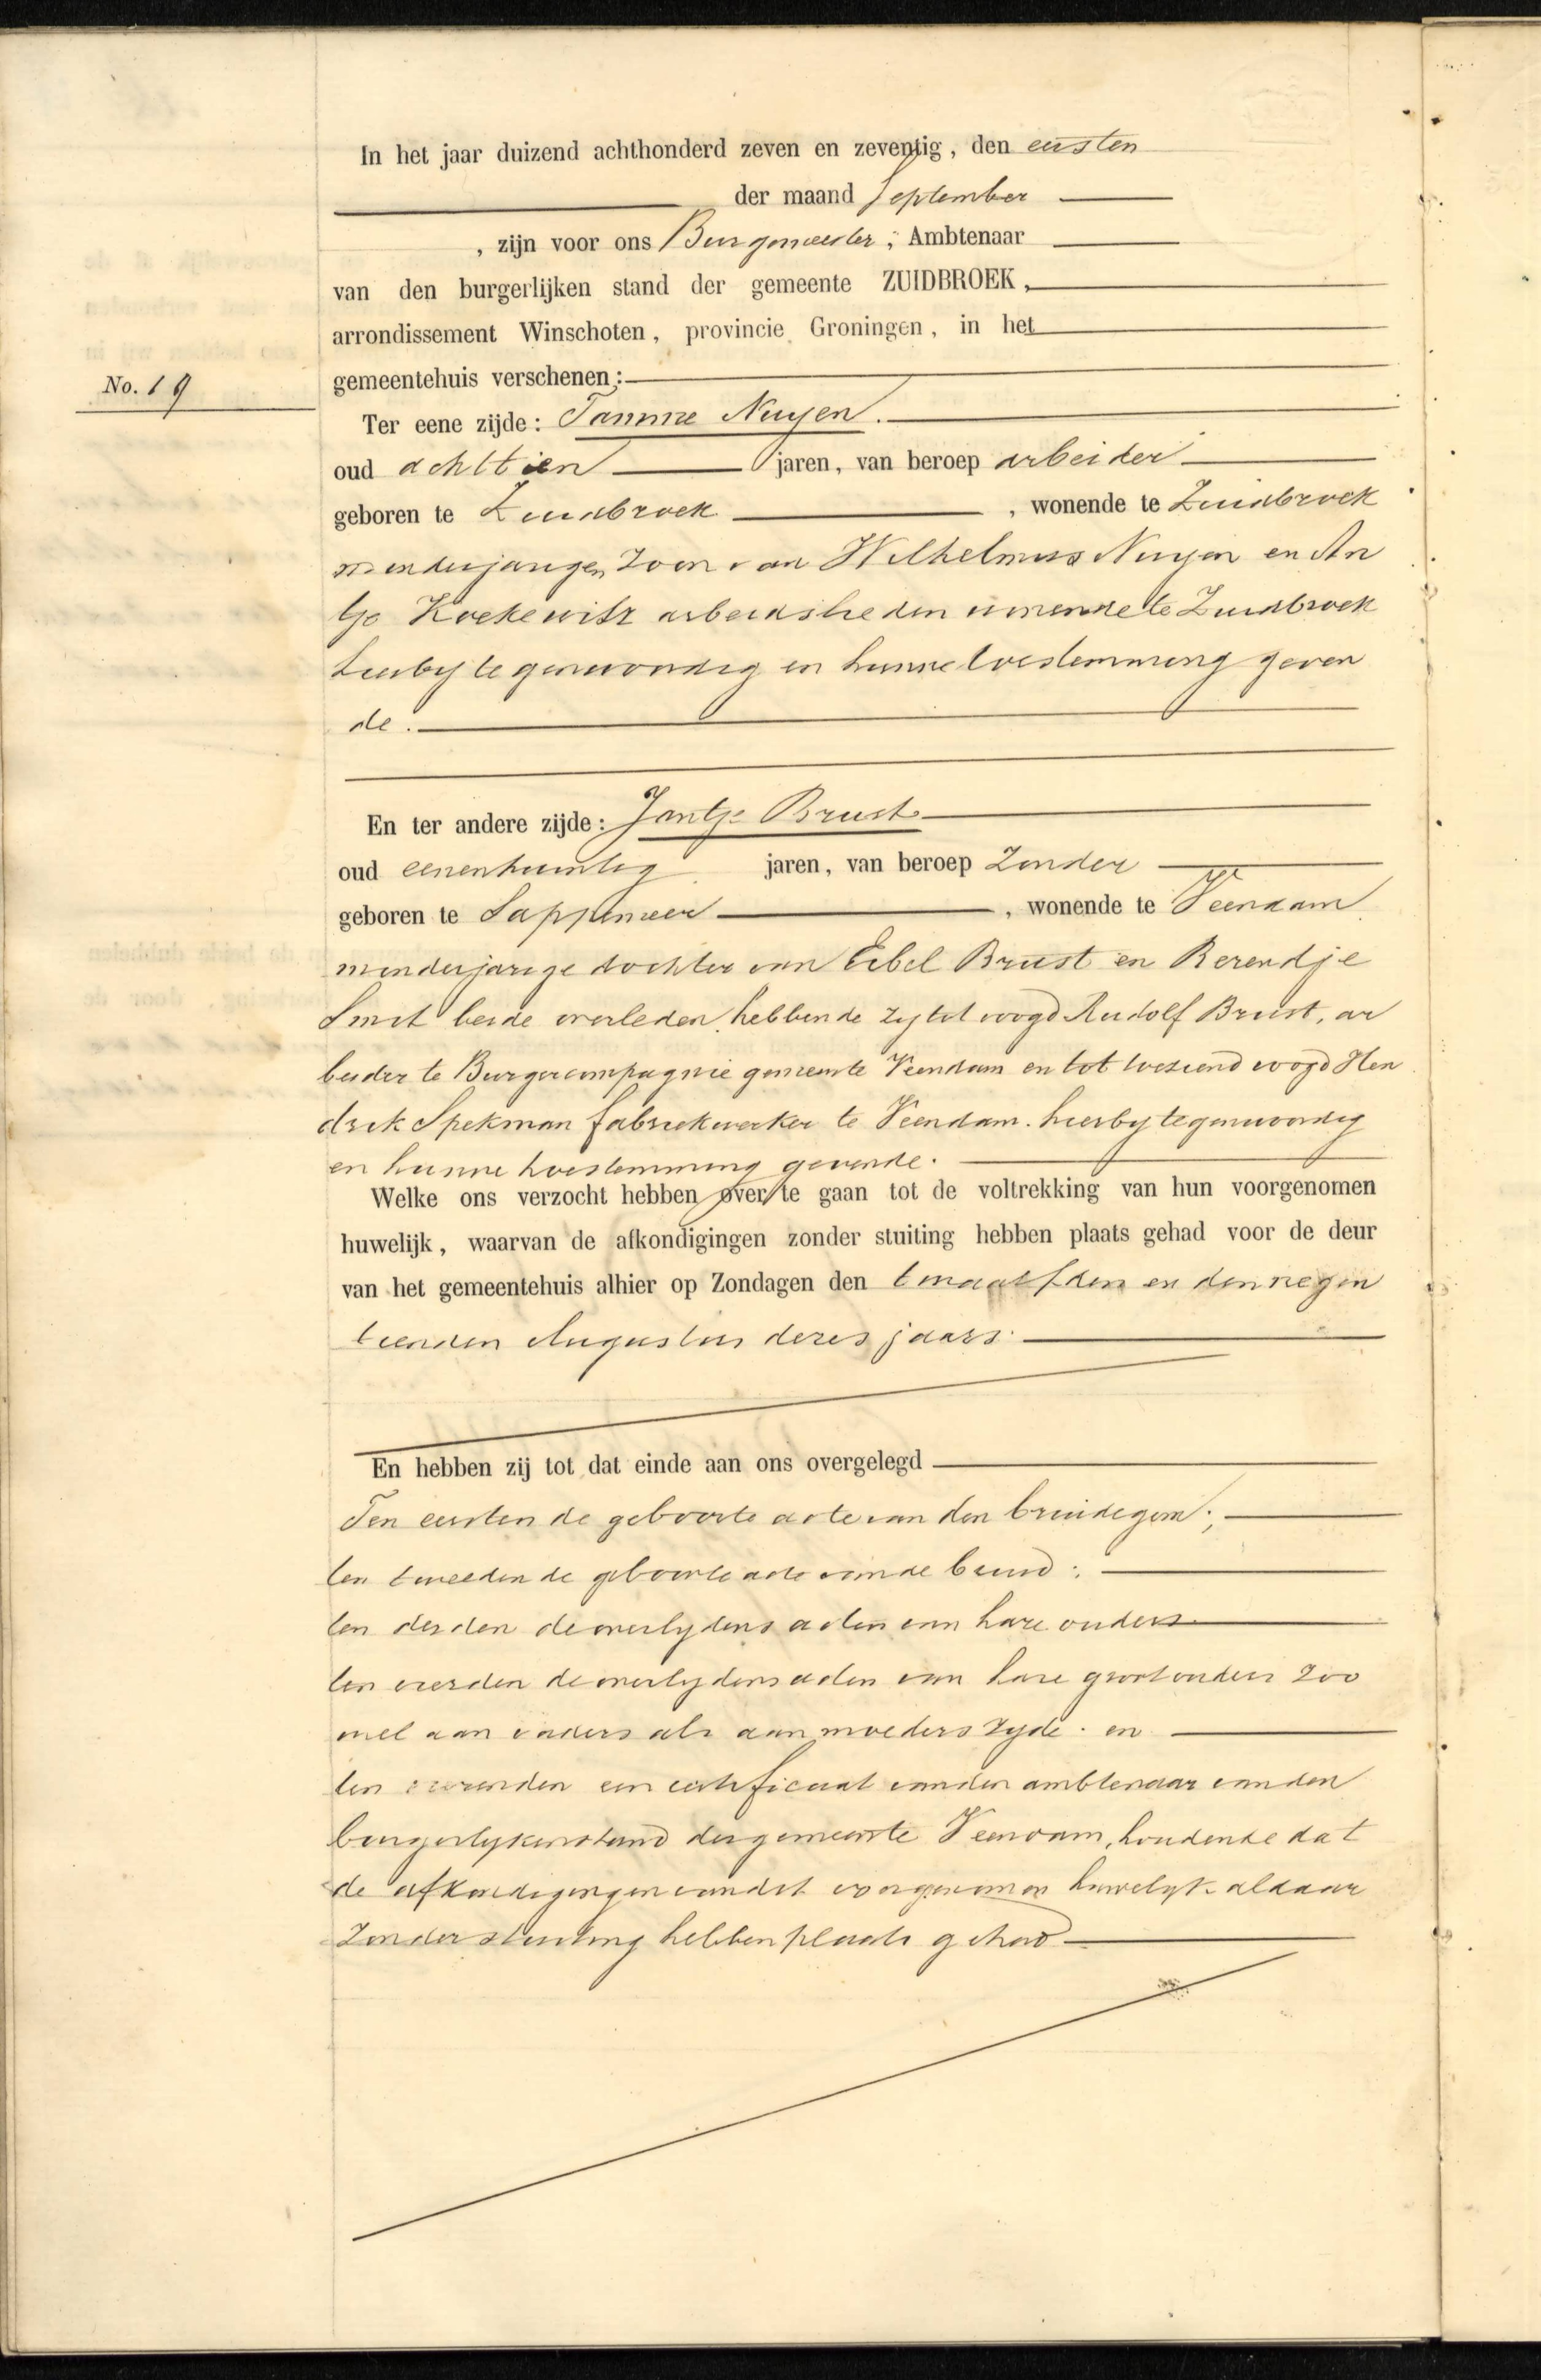 In het jaar duizend achthonderd zeven en zeventig, den eersten
der maand September
, zijn voor ons Burgemeester, Ambtenaar
van den burgerlijken stand der gemeente ZUIDBROEK,
arrondissement Winschoten, provincie Groningen, in het
gemeentehuis verschenen:
No. 19
Ter eene zijde: Tamme Nuijen.
oud achttien jaren, van beroep arbeider
geboren te Zuidbroek, wonende te Zuidbroek
minderjarigen zoon van Wilhelmus Nuijen en An
tje Koekewitz arbeidslieden wonende te Zuidbroek
hierby tegenwoordig en hunne toestemming geven
de.
En ter andere zijde: Jantje Brust
oud eenentwintig jaren, van beroep zonder
geboren te Sappemeer, wonende te Veendam
minderjarige dochter van Eibel Brust en Berendje
Smit beide overleden, hebbende zy tot voogd Rudolf Brust, ar
beider te Burgercompagnie gemeente Veendam en tot toeziend voogd Hen
drik Spekman fabriekwerker te Veendam. hierby tegenwoordig
en hunne toestemming gevende.
Welke ons verzocht hebben over te gaan tot de voltrekking van hun voorgenomen
huwelijk, waarvan de afkondigingen zonder stuiting hebben plaats gehad voor de deur
van het gemeentehuis alhier op Zondagen den twaalfden en den negen
tienden Augustus dezes jaars.
En hebben zij tot dat einde aan ons overgelegd
Ten eersten de geboorte acte van den bruidegom;
ten tweeden de geboorte acte van de bruid;
ten derden de overlydens acten van hare ouders
ten vierden de overlydens acten van hare grootouders zoo
wel aan vaders als aan moeders zyde. en
ten een certificaat van den ambtenaar van den
burgerlyken stand der gemeente Veendam, houdende dat
de afkondigingen van dit voorgenomen huwelyk aldaar
zonder stuiting hebben plaats gehad